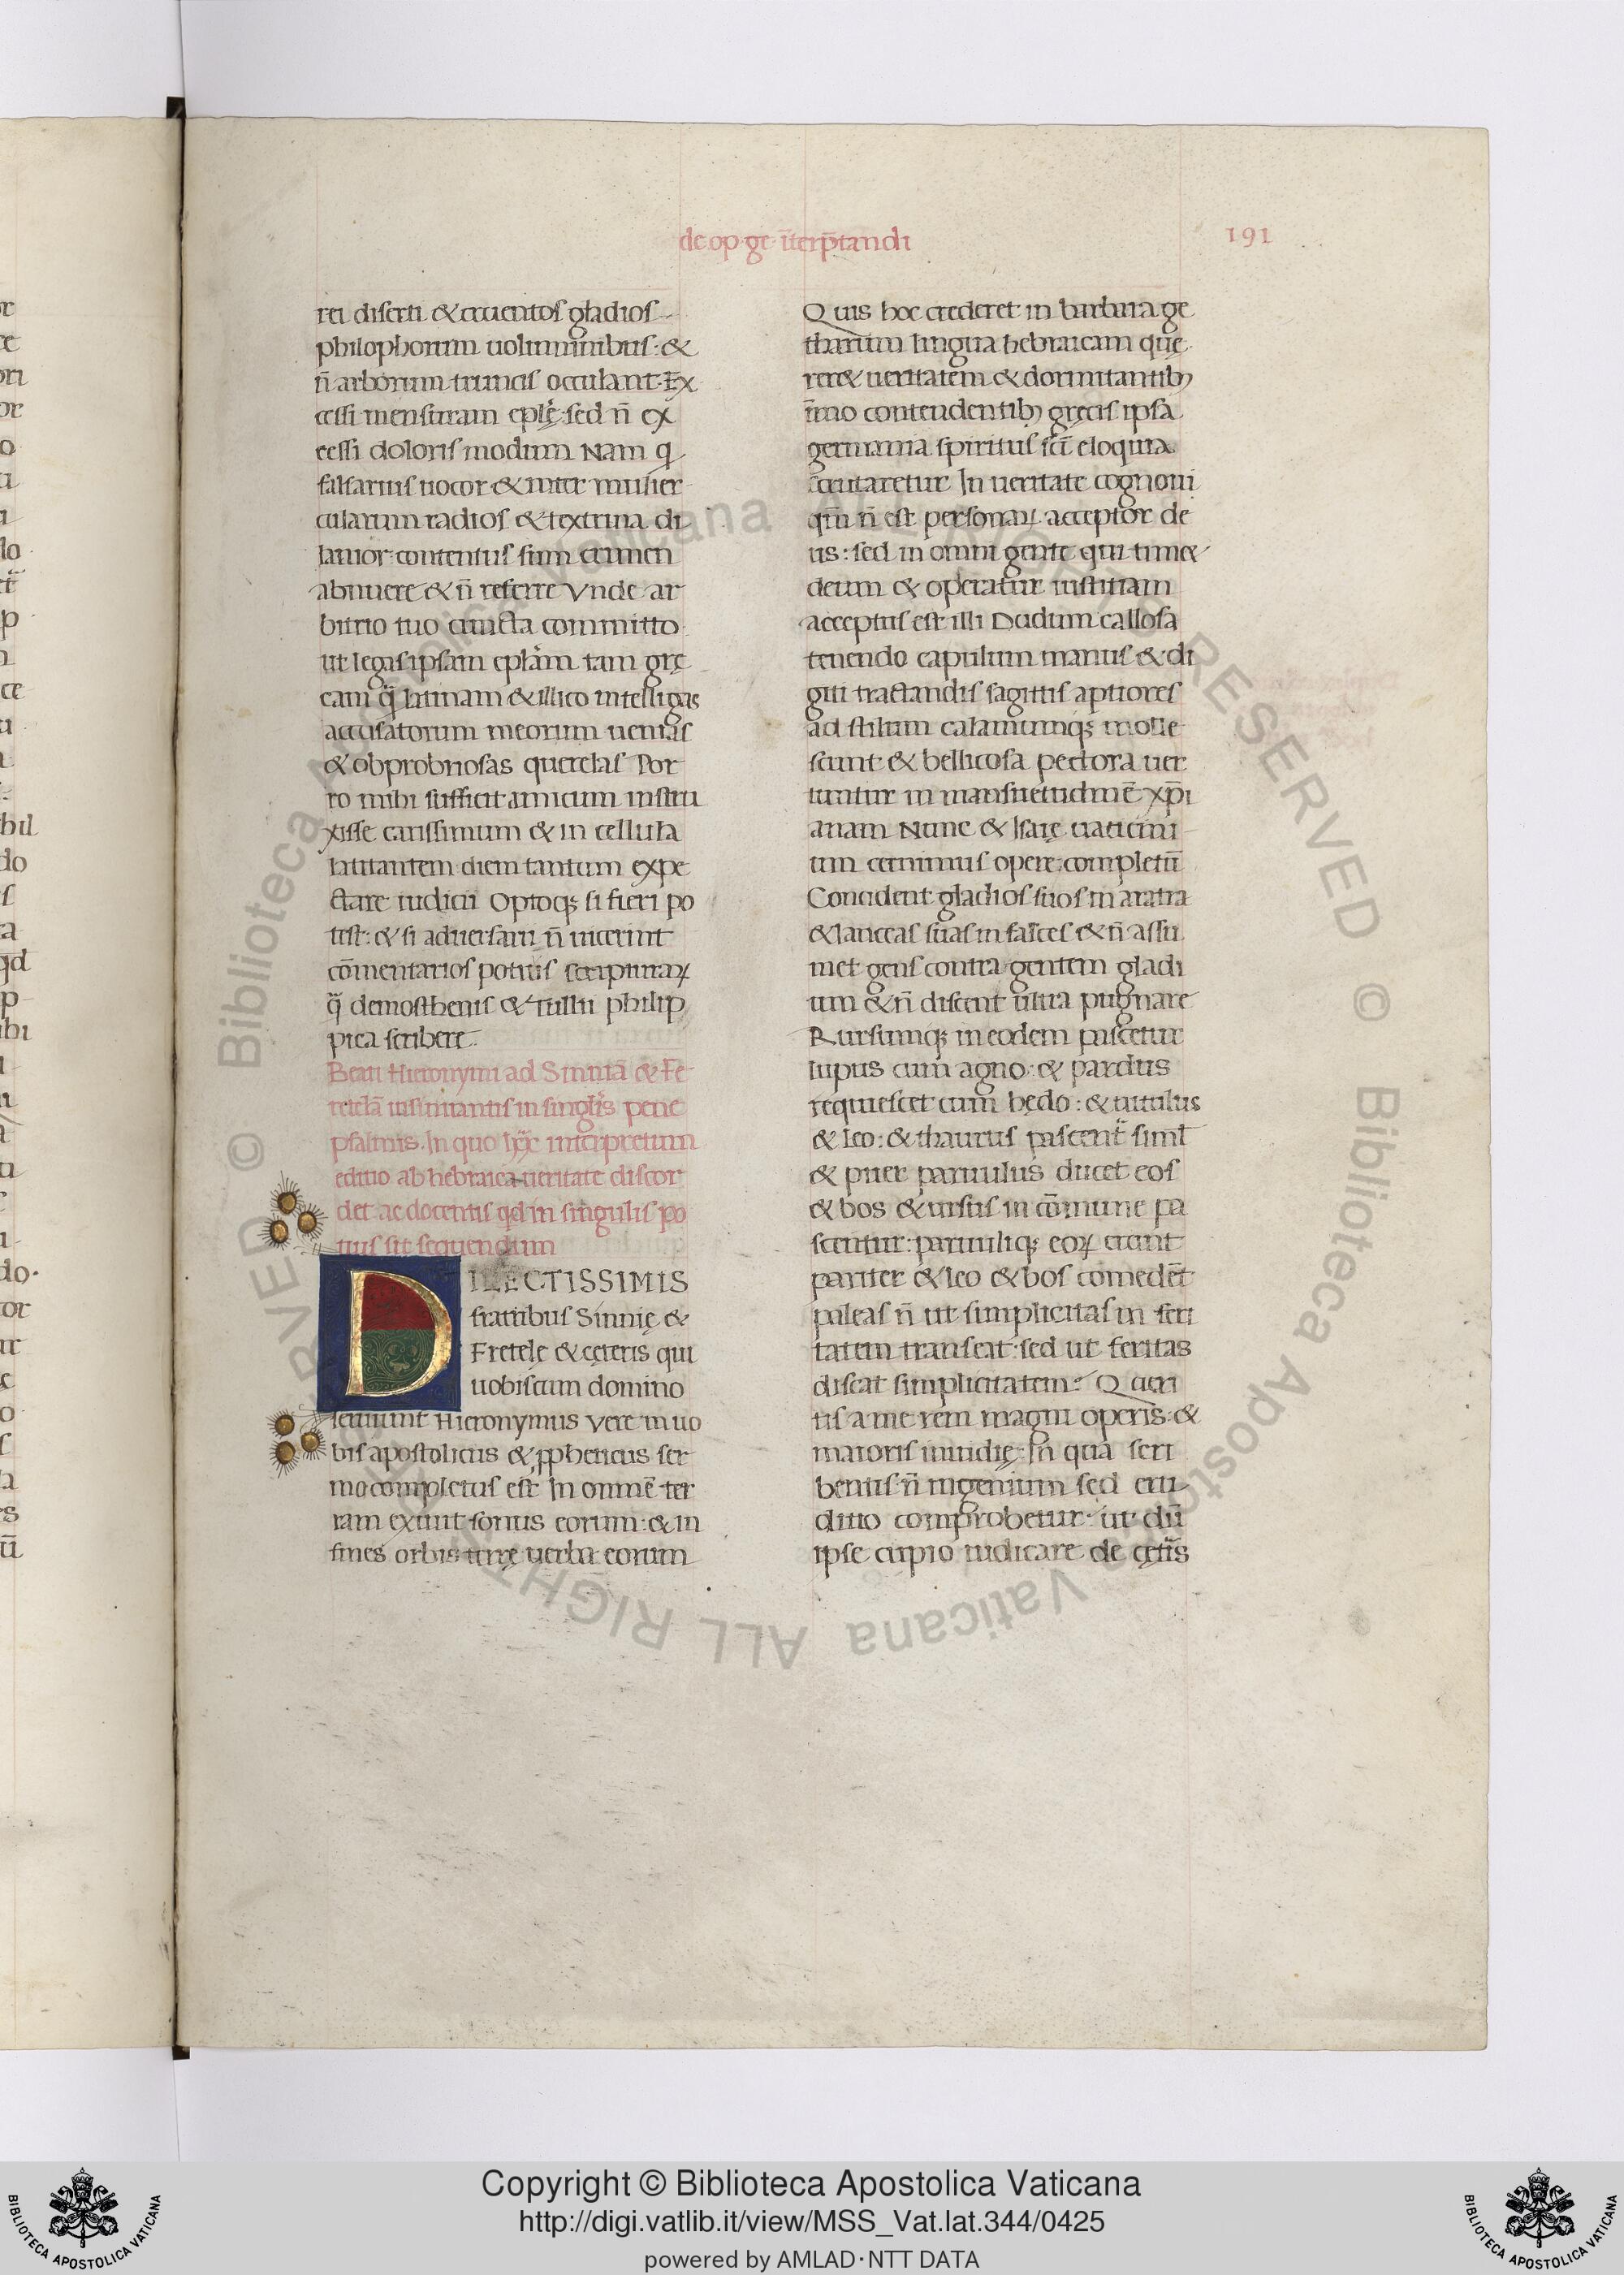 de op· ge· īterp̄tandi
191
rei diserti & cruentos gladios
philophorum uoluminibus: &
n̄ arborum truncis occulant. Ex
cessi mensuram eplę: sed n̄ ex
cessi doloris modum Nam q
falsarius uocor & inter mulier
cularum radios & textrina di
lanior contentus sum crimen
abnuere & n̄ referre Vnde ar
bitrio tuo cuncta committo
ut legas ipsam eplām tam grę
cam q̄ latinam & illico intelligas
accusatorum meorum nenias
& obprobriosas querelas Por
ro mihi sufficit amicum instru
xisse carissimum & in cellula
latitantem diem tantum expe
ctare iudicii Optoqꝫ si fieri po
test: & si aduersarii n̄ uicerint
cōmentarios potius scripturaꝝ
q̄ demosthenis & tullii philip
pica scribere
Beati Hieronymi ad Sinniā & Fre
telā insinuantis in singlis pene
psalmis. In quo lxx interpretum
editio ab hebraica ueritate discor
det ac docentis qd in singulis po
tius sit sequendum
DILECTISSIMIS
fratribus Sinnię &
Fretelę & cęteris qui
uobiscum domino
seruiunt Hieronymus Vere in uo
bis apostolicus & ꝓpheticus ser
mo completus est In omnē ter
ram exiuit sonus eorum: & in
fines orbis terrę uerba eorum
Quis hoc crederet in barbara ge
tharum lingua hebraicam quę
rere ueritatem & dormitantibꝫ
īmo contendentibꝫ gręcis ipsa
germania spiritus scī eloquia
scrutaretur In ueritate cognoui
qm̄ n̄ est personaꝝ acceptor de
us: sed in omni gente qui timet
deum & operatur iustitiam
acceptus est illi Dudum callosa
tenendo capulum manus & di
giti tractandis sagittis aptiores
ad stilum calamumqꝫ molle
scunt & bellicosa pectora uer
tuntur in mansuetudinē xp̄i
anam Nunc & Isaię uaticini
um cernimus opere completū
Concident gladios suos in aratra
& lanceas suas in falces & n̄ assu
met gens contra gentem gladi
um & n̄ discent ultra pugnare
Rursumqꝫ in eodem pascetur
lupus cum agno: & pardus
requiescet cum hędo: & uitulus
& leo: & thaurus pascent siml
& puer paruulus ducet eos
& bos & ursus in cōmune pa
scentur: paruuliqꝫ eoꝝ erunt
pariter & leo & bos comedēt
paleas n̄ ut simplicitas in feri
tatem transeat: sed ut feritas
discat simplicitatem: Quęri
tis a me rem magni operis: &
maioris inuidię: In qua scri
bentis n̄ ingenium sed eru
ditio comprobetur: ut dū
ipse cupio iudicare de cętis
Copyright © Biblioteca Apostolica Vaticana
http://digi.vatlib.it/view/MSS_Vat.lat.344/0425
powered by AMLAD·NTT DATA
BIBLIOTECA APOSTOLICA VATICANA
BIBLIOTECA APOSTOLICA VATICANA